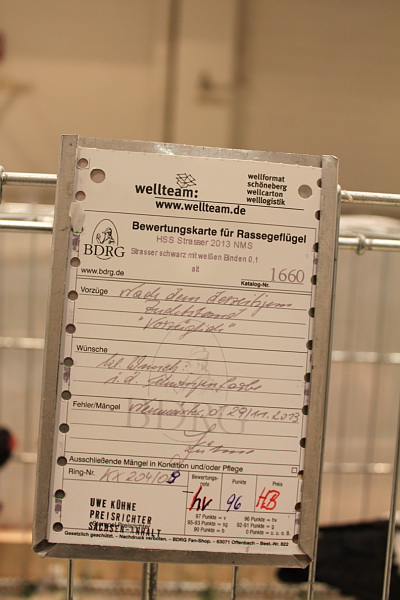 wellteam:
wellformat
schöneberg
wellcarton
welllogistik
www.wellteam.de
BDRG
www.bdrg.de
Bewertungskarte für Rassegeflügel
HSS Strasser 2013 NMS
Strasser schwarz mit weißen Binden 0,1
alt
1660
Katalog-Nr.
Vorzüge
Nach dem derzeitigen
Zuchtstand
"Vorzüglich"
Wünsche
i. d.
Fehler/Mängel
29/11.2013
BDRG
Ausschließende Mängel in Kondition und/oder Pflege
Ring-Nr.
Bewertungs-
note
Punkte
Preis
hv
96
UWE KÜHNE
PREISRICHTER
SACHSEN-ANHALT
97 Punkte = v
96 Punkte = hv
95-93 Punkte = sg
92-91 Punkte = g
90 Punkte = b
0 Punkte = o. u. o. B.
Gesetzlich geschützt. - Nachdruck verboten. - BDRG Fan-Shop. - 63071 Offenbach - Best.-Nr. 822